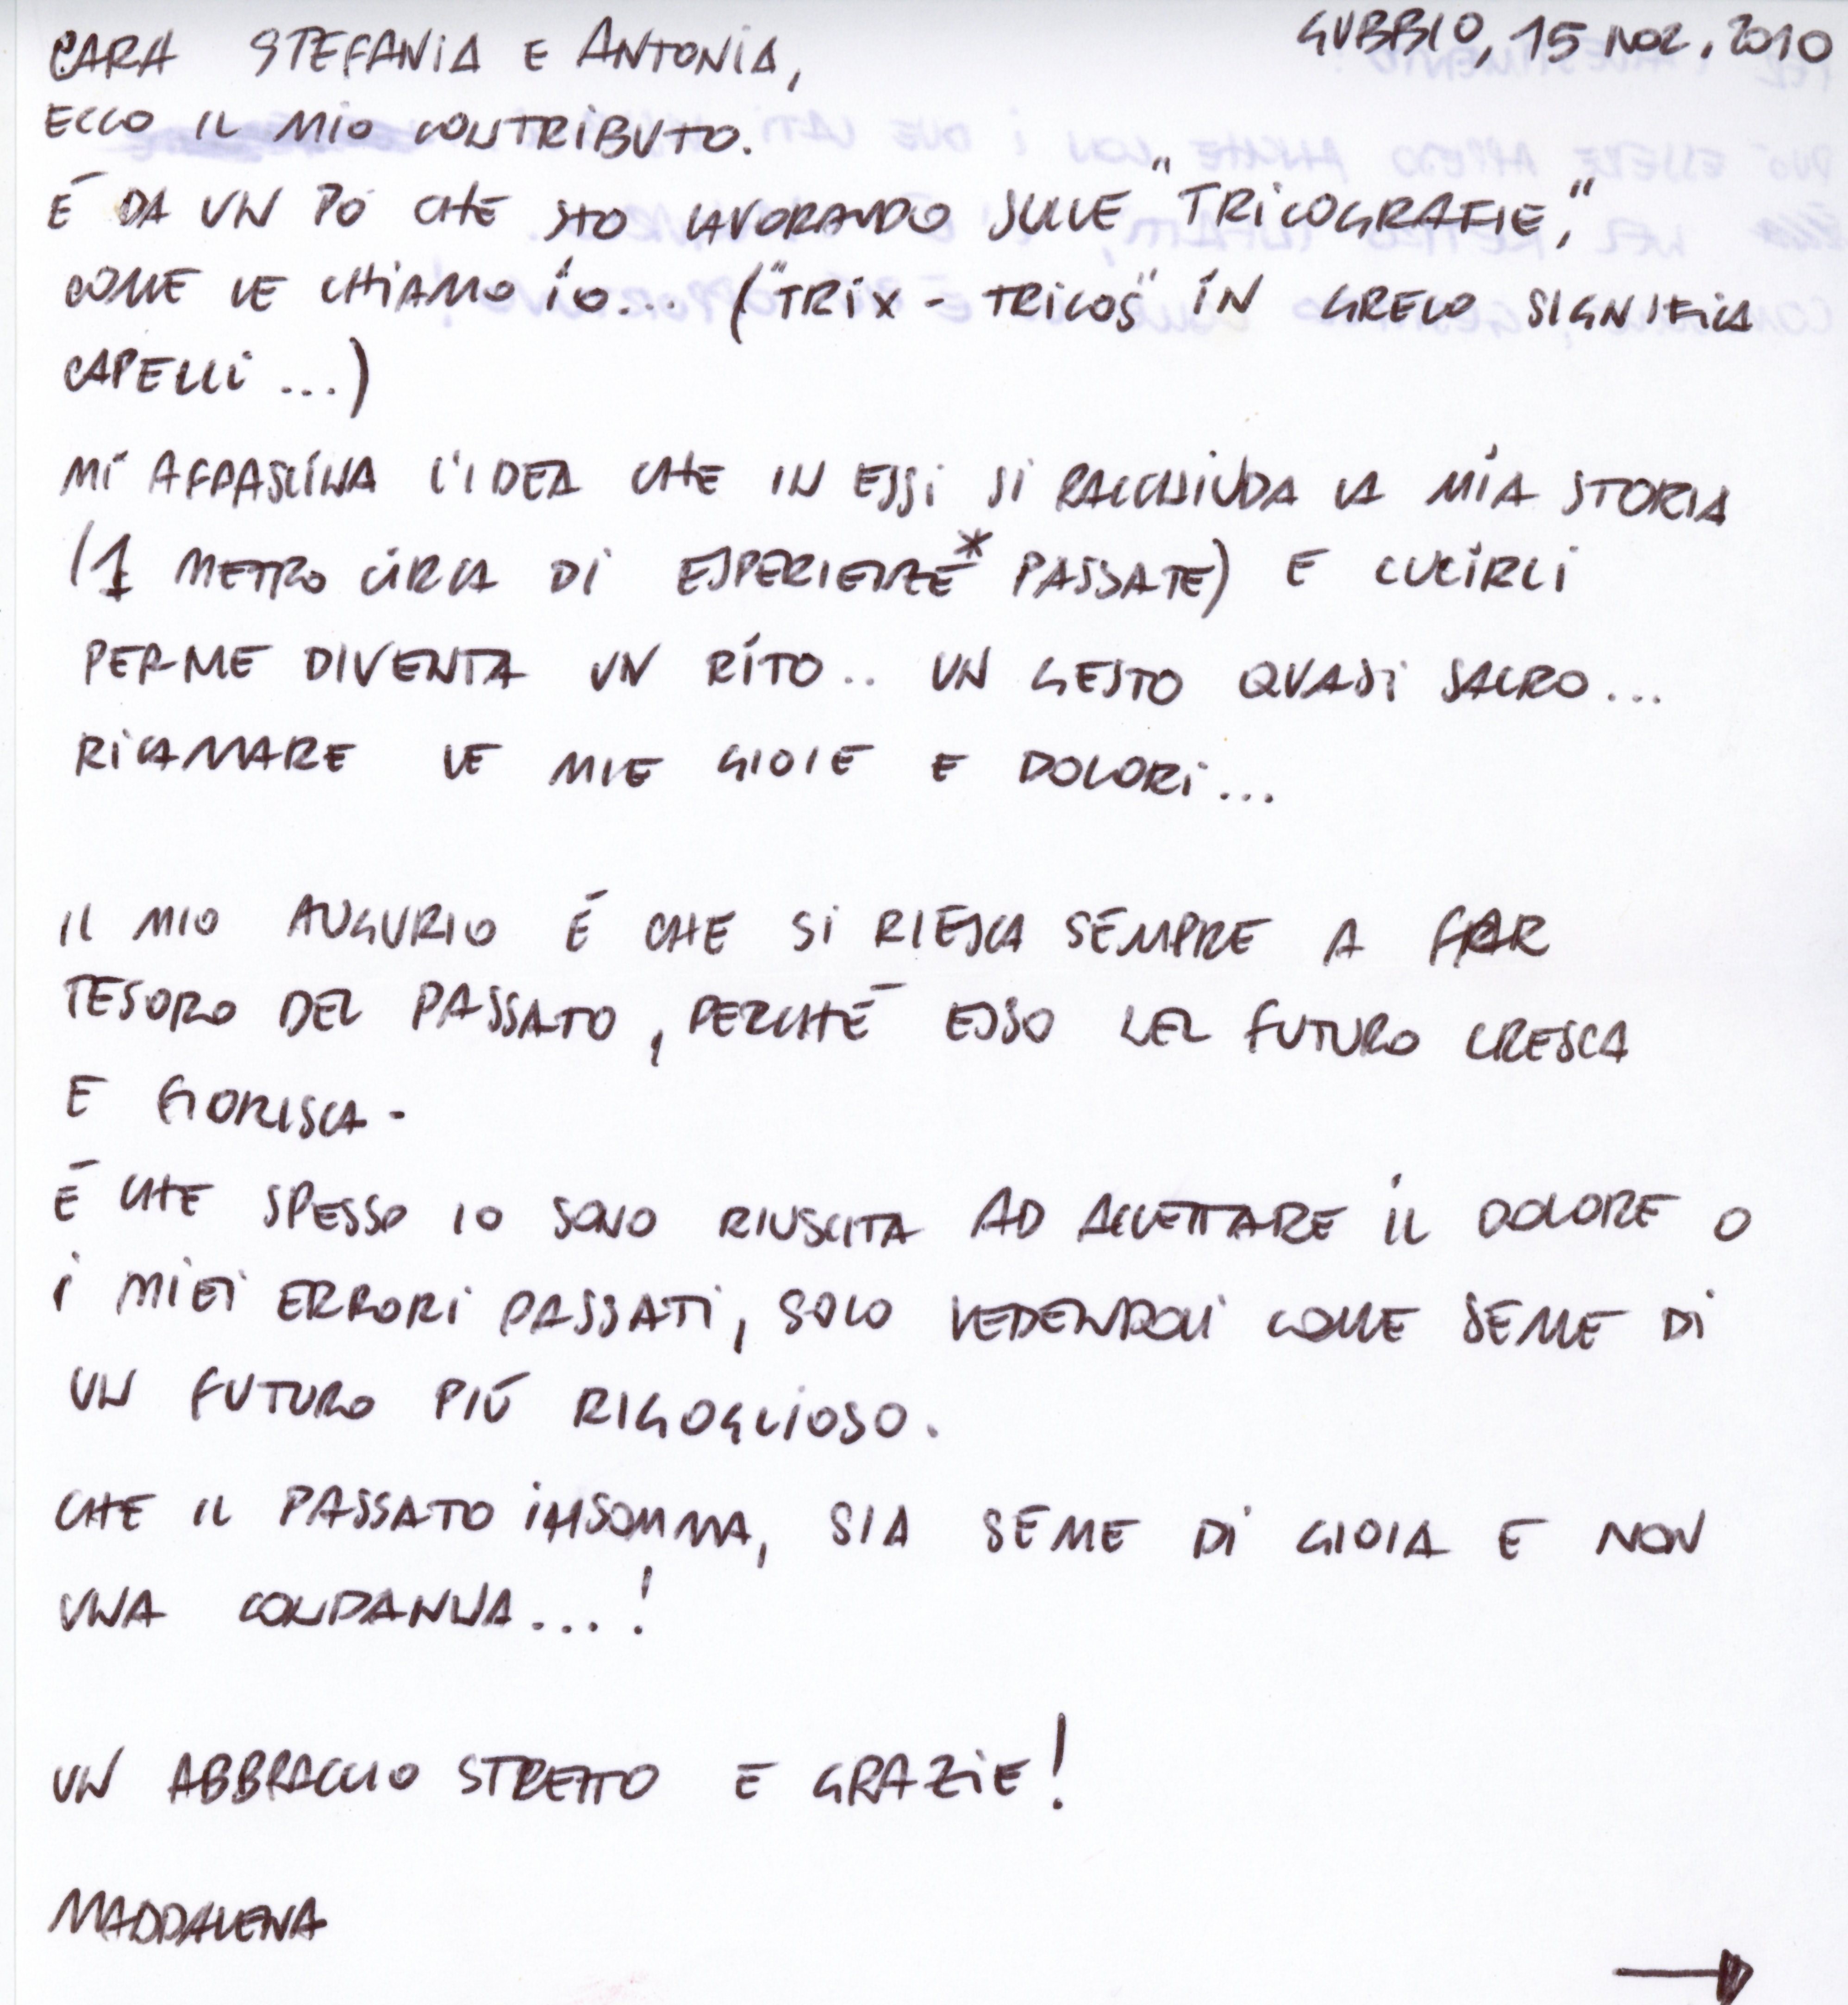 GUBBIO, 15 NOV. 2010
CARA STEFANIA E ANTONIA,
ECCO IL MIO CONTRIBUTO.
É DA UN PO CHE STO LAVORANDO SULLE "TRICOGRAFIE,"
COME LE CHIAMO IO... ("TRIX - TRICOS" IN GRECO SIGNIFICA
CAPELLI ...)
MI AFFASCINA L'IDEA CHE IN ESSI SI RACCHIUDA LA MIA STORIA
(1 METRO CIRCA DI ESPERIENZE* PASSATE) E CUCIRLI
PER ME DIVENTA UN RITO.. UN GESTO QUASI SACRO...
RICAMARE LE MIE GIOIE E DOLORI...
IL MIO AUGURIO É CHE SI RIESCA SEMPRE A FAR
TESORO DEL PASSATO, PERCHÉ ESSO NEL FUTURO CRESCA
E FIORISCA -
É CHE SPESSO IO SONO RIUSCITA AD ACCETTARE IL DOLORE O
I MIEI ERRORI PASSATI, SOLO VEDENDOLI COME SEME DI
UN FUTURO PIÚ RIGOGLIOSO.
CHE IL PASSATO INSOMMA, SIA SEME DI GIOIA E NON
UNA CONDANNA...!
UN ABBRACCIO STRETTO E GRAZIE!
MADDALENA